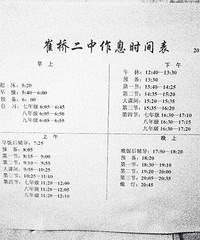 崔桥二中作息时间表
20
早 上
起 床：5:20
早 操：5:40—6:00
预 备：6:00
自 习：七年级 6:05—6:45
八年级 6:05—6:50
九年级 6:05—6:55
下 午
午 休：12:40—13:30
预 备：13:30
第一节：13:40—14:25
第二节：14:35—15:20
大课间：15:20—15:35
第三节：15:35—16:20
第四节：七年级 16:30—17:10
八年级 16:30—17:15
九年级 16:30—17:20
上 午
早饭后辅导：7:25
预 备：8:05
第一节：8:15—9:00
第二节：9:10—9:55
大课间：9:55—10:25
第三节：10:25—11:10
第四节：七年级 11:20—12:00
八年级 11:20—12:05
九年级 11:20—12:10
晚 上
晚饭后辅导：17:50—18:20
预 备：18:20
第一节：18:30—19:10
第二节：19:20—20:00
第三节：20:05—20:35
熄 灯：20:45